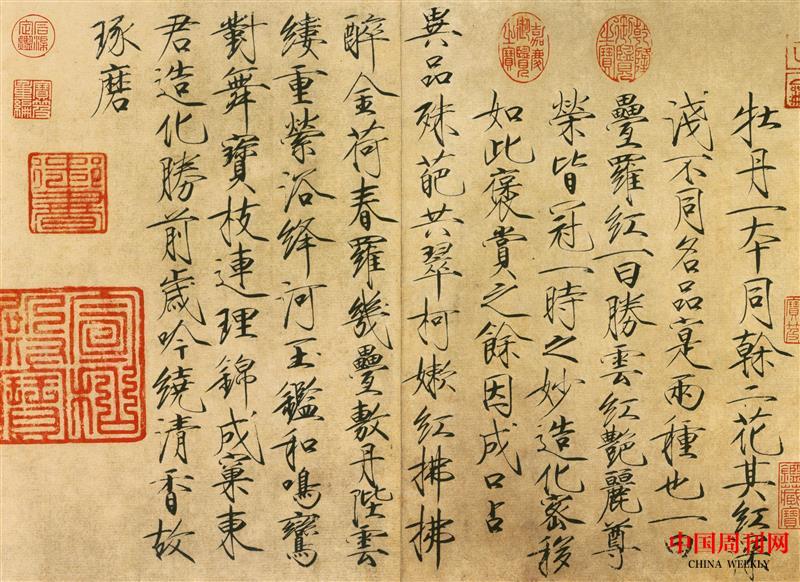 牡丹一本同榦二花其紅深
淺不同名品寔兩種也一曰
疊羅紅一曰勝雲紅艷麗尊
榮皆冠一時之妙造化密移
如此褒賞之餘因成口占
異品殊葩共翠柯嫩紅拂拂
醉金荷春羅幾疊敷丹陛雲
縷重縈浴絳河玉鑑和鳴鸞
對舞寶枝連理錦成窠東
君造化勝前歲吟繞清香故
琢磨
嘉慶御覽之寶
乾隆御覽之寶
石渠定鑑
寶笈重編
御書
中国周刊网
CHINA WEEKLY